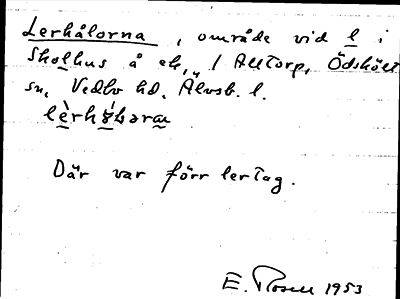 Lerhålorna, område vid l i
Skolhus å ek, / Alltorp, Ödskölt
sn, Vedbo hd. Älvsb. l.
Där var förr lertag.
E. Rosell 1953